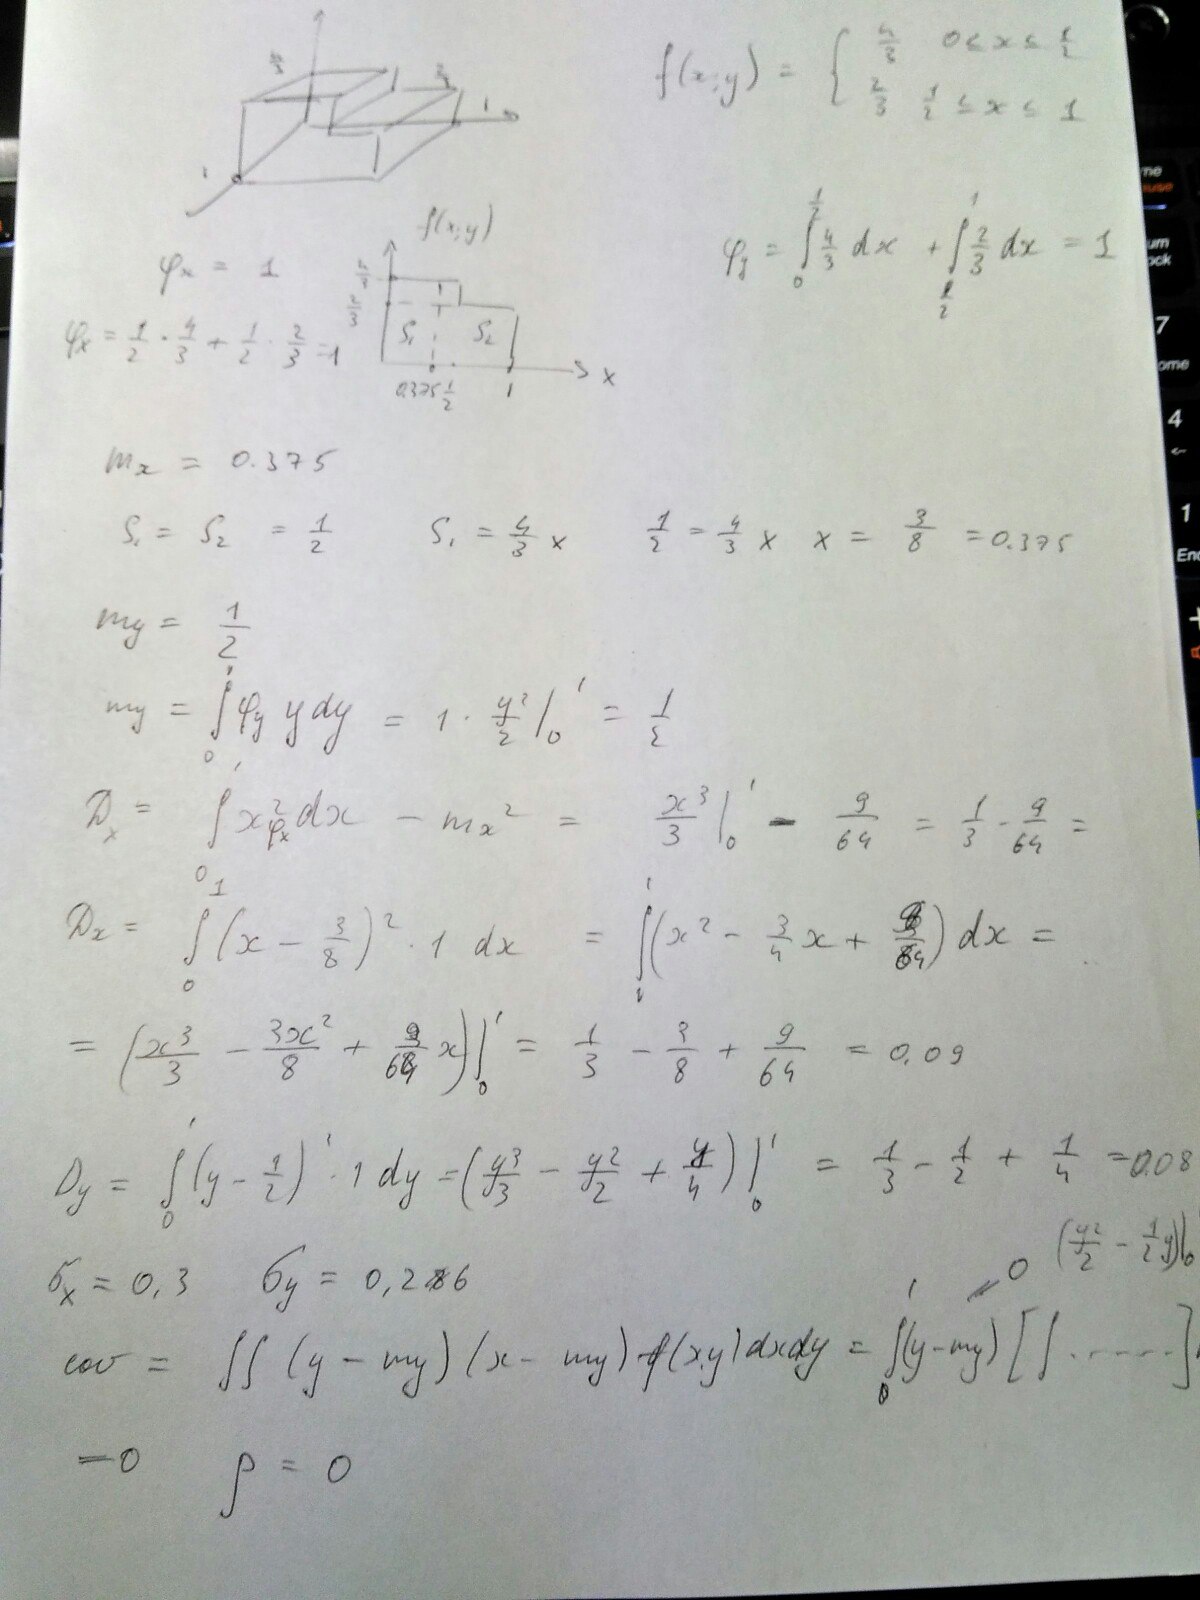 4/3 2/3 1
1
f(x;y) = { 4/3 0 ≤ x ≤ 1/2
2/3 1/2 ≤ x ≤ 1
f(x;y)
φ_y = ∫_0^{1/2} 4/3 dx + ∫_{1/2}^1 2/3 dx = 1
φ_x = 1
φ_x = 1/2 · 4/3 + 1/2 · 2/3 = 1
4/3
2/3 S₁ S₂
0.375 1/2 1 x
m_x = 0.375
S₁ = S₂ = 1/2 S₁ = 4/3 x 1/2 = 4/3 x x = 3/8 = 0.375
m_y = 1/2
m_y = ∫_0^1 φ_y y dy = 1 · y²/2 |_0^1 = 1/2
D_x = ∫_0^1 x² φ_x dx − m_x² = x³/3 |_0^1 − 9/64 = 1/3 − 9/64 =
D_x = ∫_0^1 (x − 3/8)² · 1 dx = ∫^1 (x² − 3/4 x + 9/64) dx =
= (x³/3 − 3x²/8 + 9/64 x) |_0^1 = 1/3 − 3/8 + 9/64 = 0,09
D_y = ∫_0^1 (y − 1/2)² · 1 dy = (y³/3 − y²/2 + y/4) |_0^1 = 1/3 − 1/2 + 1/4 = 0.08
σ_x = 0,3 σ_y = 0,286 0 (y²/2 − 1/2 y)|_0
cov = ∫∫ (y − m_y)(x − m_y) f(x,y) dxdy = ∫_0^1 (y − m_y) [∫ ......]
= 0 ρ = 0